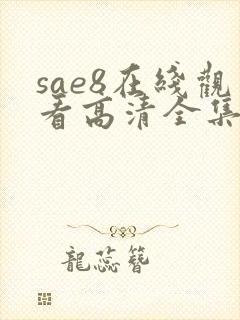 sae8在綫觀
看高清全集
龍蕊簪